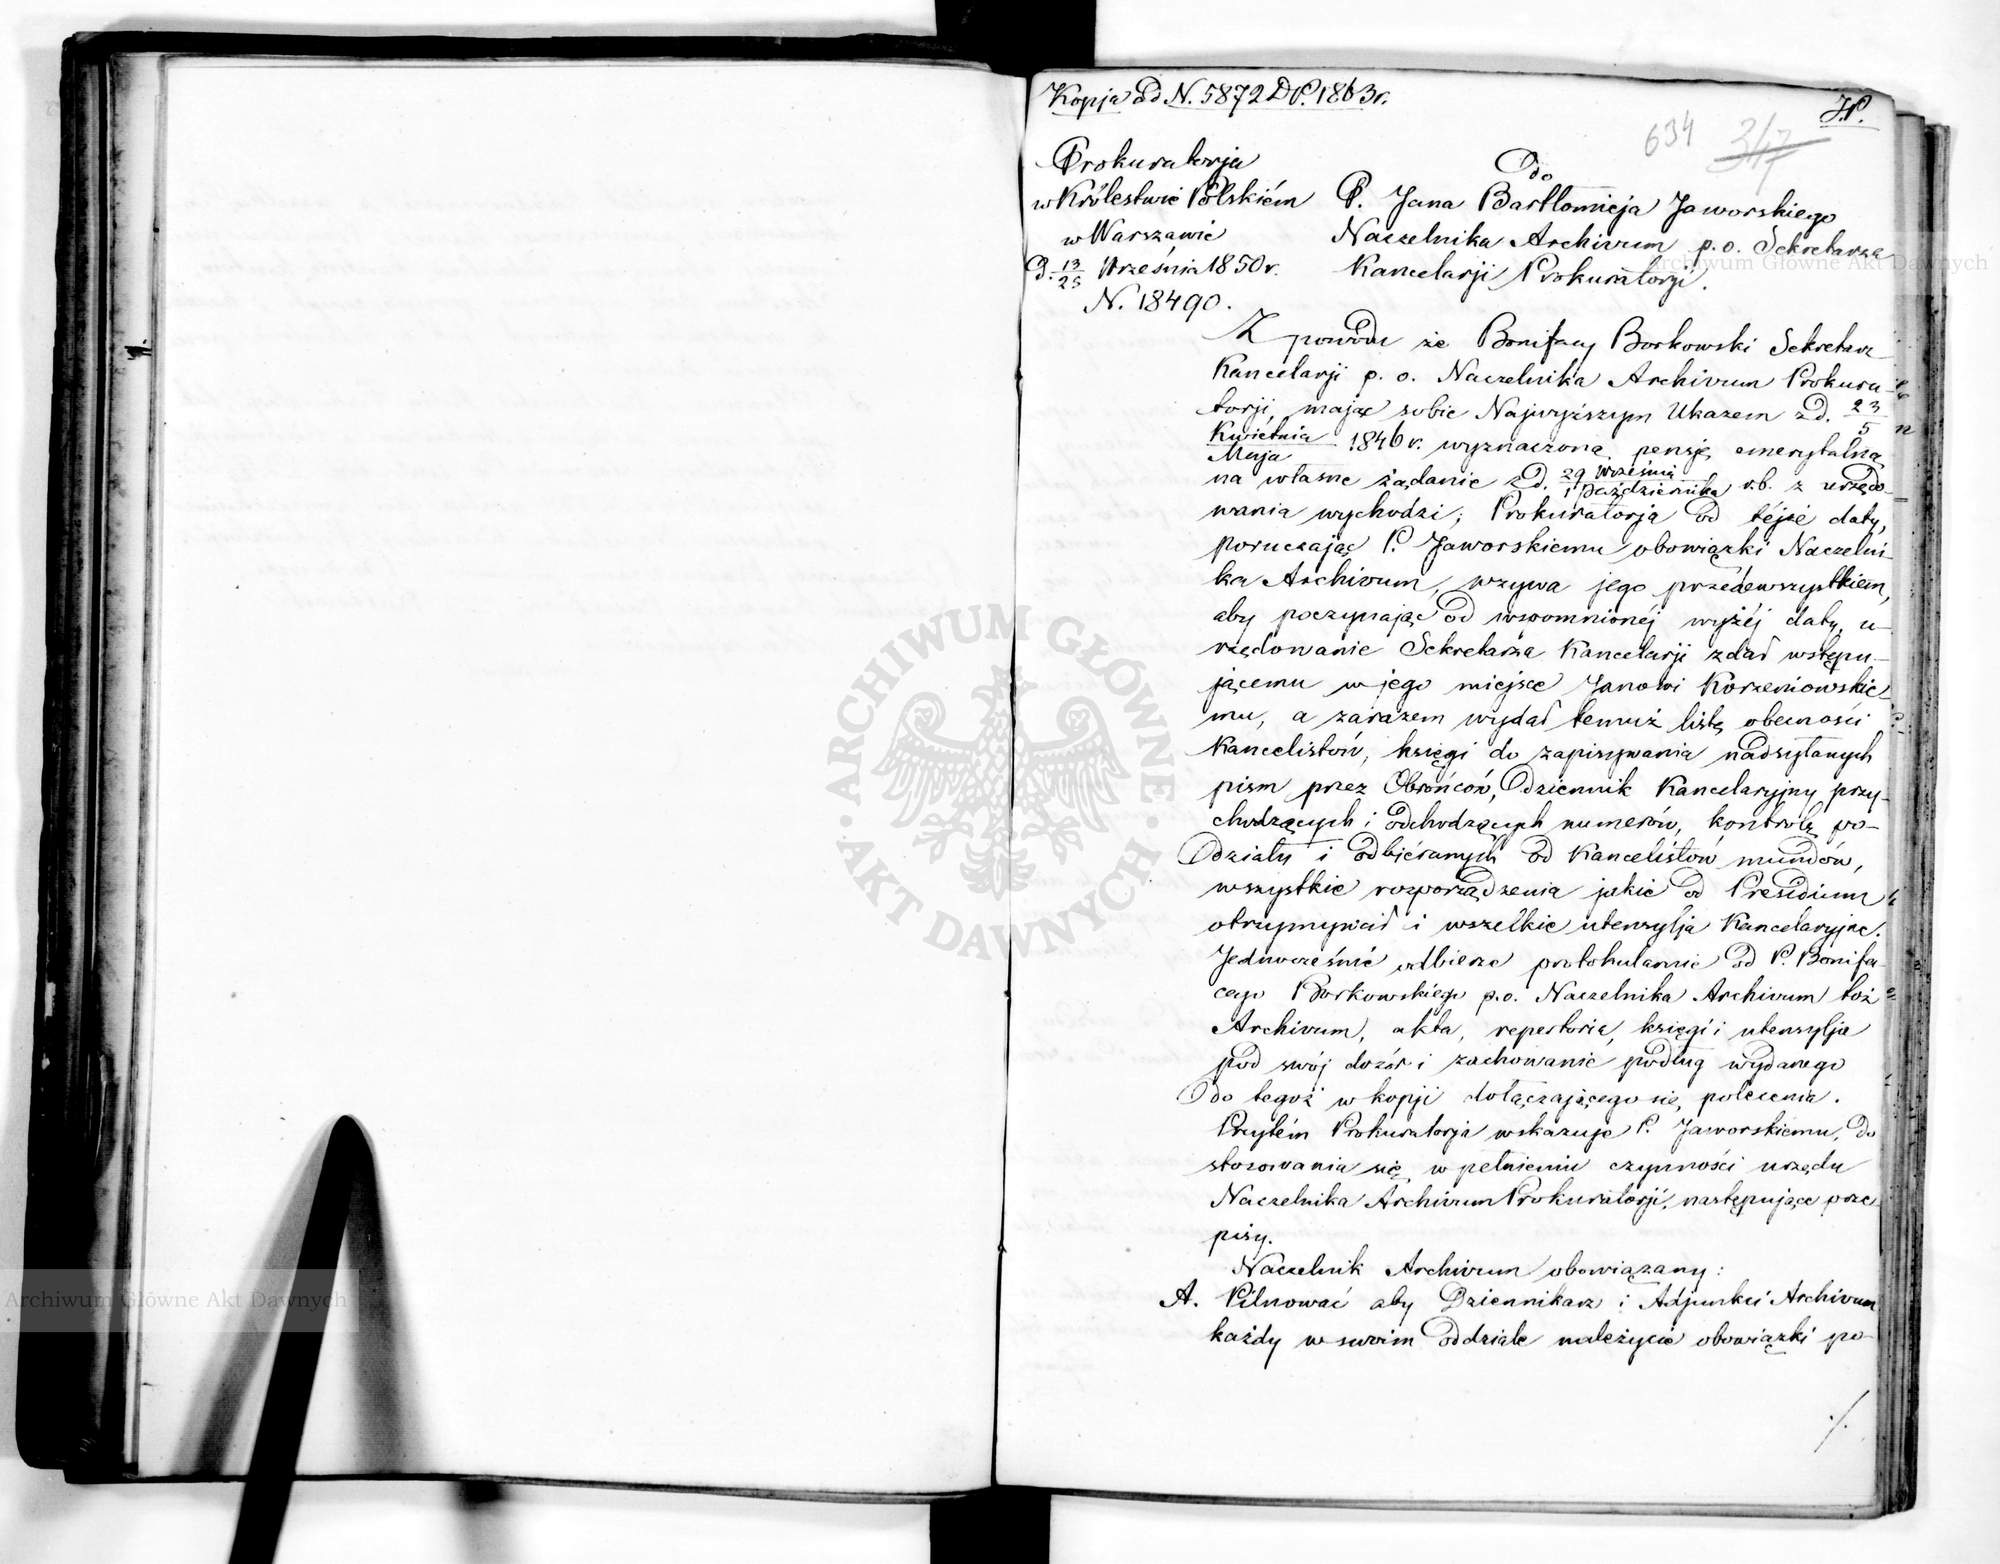 Kopja ad N. 5872 D P. 1863 r.
J.P.
634 347
Prokuratorja
w Królestwie Polskiém
w Warszawie
D. 13/25 Września 1850 r.
N. 18490.
Do
P. Jana Bartłomieja Jaworskiego
Naczelnika Archivum p. o. Sekretarza
Kancelarji Prokuratorji.
Z powodu że Bonifacy Borkowski Sekretarz
Kancelarji p. o. Naczelnika Archivum Prokura-
torji, mając sobie Najwyższym Ukazem z d. 23/5
Kwietnia/Maja 1846 r. wyznaczoną pensję emerytalną
na własne żądanie z d. 29 Września/1 Października r.b. z urzędo-
wania wychodzi; Prokuratorja od téjże daty,
poruczając P. Jaworskiemu obowiązki Naczelni-
ka Archivum, wzywa jego przedewszystkiém,
aby poczynając od wspomnionéj wyżéj daty, u-
rzędowanie Sekretarza Kancelarji zdał wstępu-
jącemu w jego miejsce Janowi Korzeniowskie-
mu, a zarazem wydał temuż listę obecności
Kancelistów, księgi do zapisywania nadsyłanych
pism przez Obrońców, Dziennik Kancelaryjny przy-
chodzących i odchodzących numerów, kontrolę po-
działu i odbiéranych od Kancelistów mundów,
wszystkie rozporządzenia jakie od Presidium
otrzymywał i wszelkie utensylja Kancelaryjne.
Jednocześnie odbierze protokularnie od P. Bonifa-
cego Borkowskiego p.o. Naczelnika Archivum toż
Archivum, akta, repertoria, księgi i utensylja
pod swój dozór i zachowanie podług wydanego
do tegoż w kopji dołączającego się, polecenia.
Przytém Prokuratorja wskazuje P. Jaworskiemu, do
stosowania się w pełnieniu czynności urzędu
Naczelnika Archivum Prokuratorji, następujące prze-
pisy.
Naczelnik Archivum obowiązany:
A. Pilnować aby Dziennikarz i Adjunkci Archivum
każdy w swoim oddziale należycie obowiązki po-
./.
ARCHIWUM GŁÓWNE AKT DAWNYCH
Archiwum Główne Akt Dawnych
Archiwum Główne Akt Dawnych